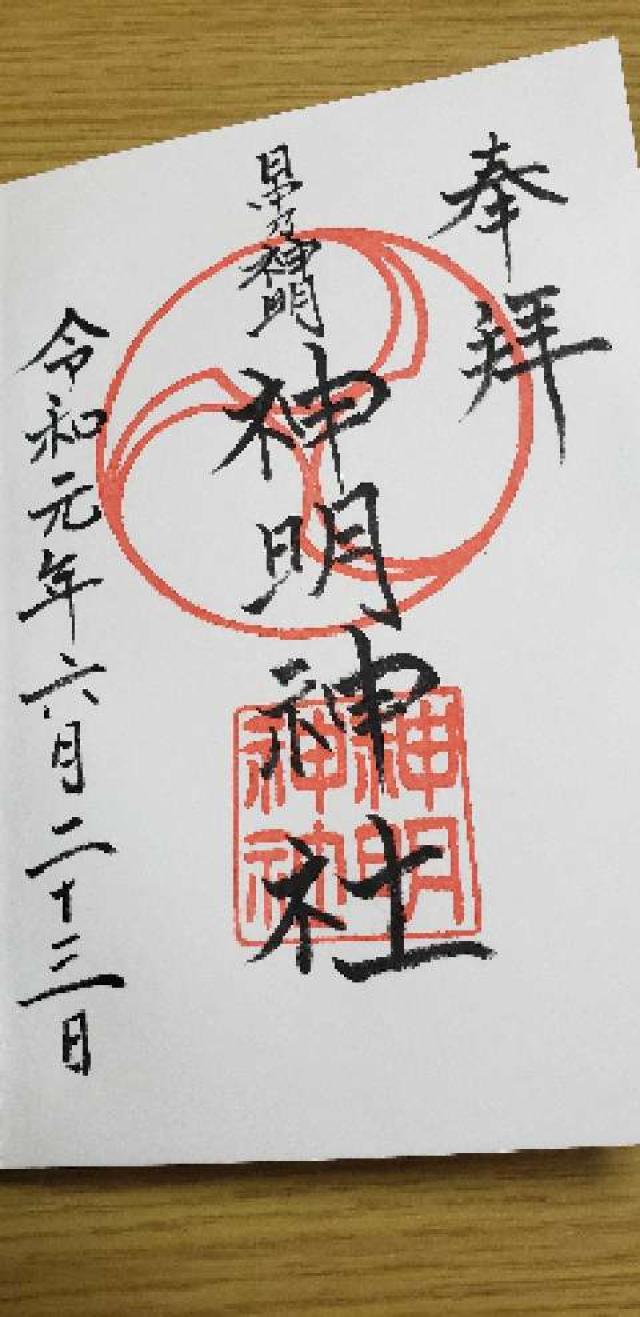 奉拝
神明
神明神社
神明
神社
令和元年六月二十三日